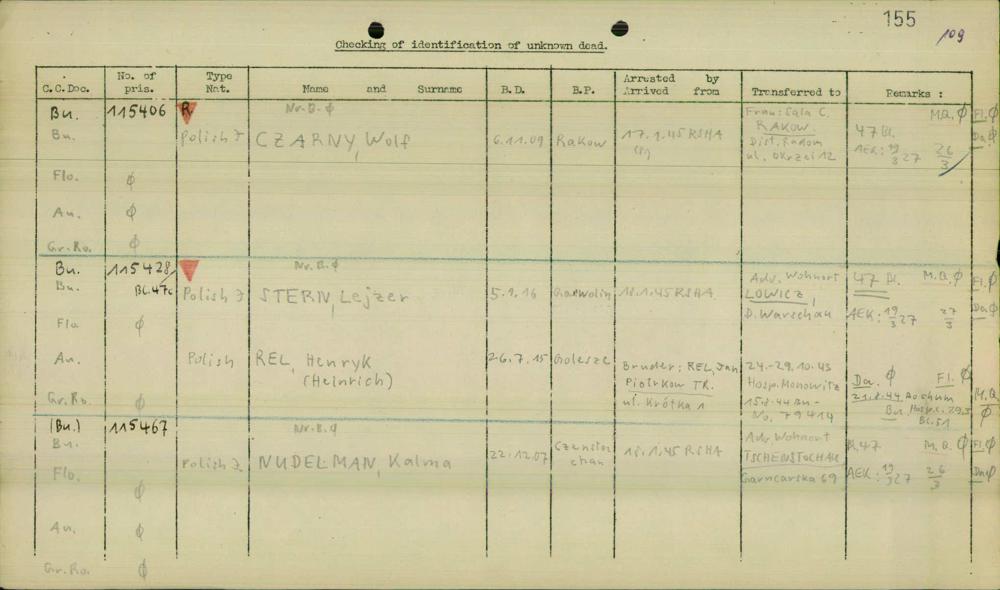 155
109
Checking of identification of unknown dead.
C.C.Doc. No. of pris. Type Nat. Name and Surname B.D. B.P. Arrested by Arrived from Transferred to Remarks :
Bu. 115406 R Nr.B.Ø Frau: Sala C. M.Q. Ø Fl. Ø
Bu. Polish J CZARNY, Wolf 6.11.09 Rakow 17.1.45 RSHA RAKOW 47 Bl. Da. Ø
Dist. Radom AEK: 19/3 27 26/3
ul. Okrzei 12
Flo. Ø
An. Ø
Gr.Ro. Ø
Bu. 115428 Nr.B.Ø Adr. Wohnort 47 Bl. M.Q. Ø Fl. Ø
Bu. Bl.47c Polish J STERN, Lejzer 5.9.16 Garwolin 18.1.45 RSHA LOWICZ, Da Ø
Flo Ø D. Warschau AEK: 19/3 27 27/3
An. Polish REL, Henryk 26.7.15 Golesze Bruder: REL, Jan 24.-29.10.43 Da. Ø Fl. Ø
(Heinrich) Piotrkow TR. Hosp. Monowitz 21.8.44 Bochum M.Q.
Gr.Ro. Ø ul. Krótka 1 15.8.44 Bu- Bu. Hosp. Ø
No. 79414 Bl.51
(Bu.) 115467 Nr.B.Ø Adr. Wohnort
Bu. Polish J. NUDELMAN, Kalma 22.12.07 Czenstochau 18.1.45 RSHA TSCHENSTOCHAU 47 M.Q. Ø Fl. Ø
Flo. Ø Garncarska 69 AEK: 19/3 27 26/3 Da Ø
An. Ø
Gr.Ro. Ø